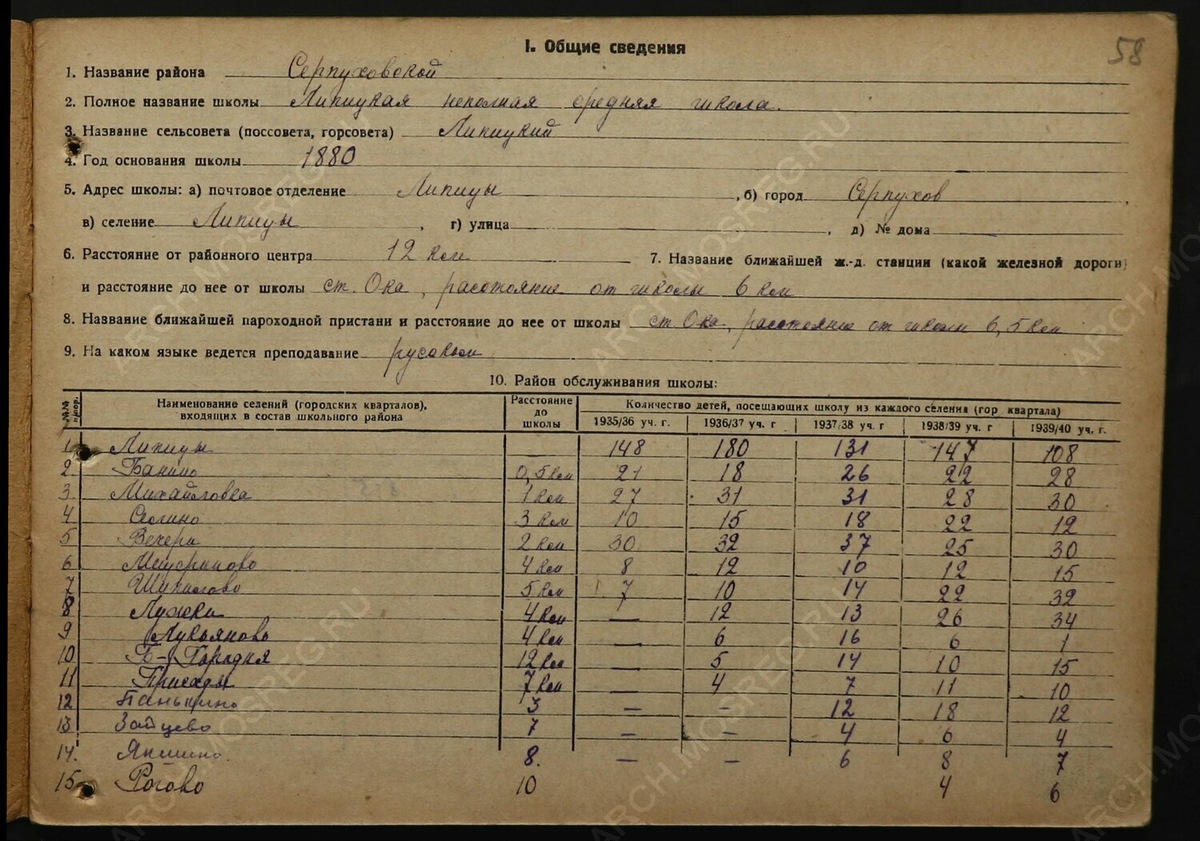 58
I. Общие сведения
1. Название района Серпуховской
2. Полное название школы Липицкая неполная средняя школа.
3. Название сельсовета (поссовета, горсовета) Липицкий
4. Год основания школы 1880
5. Адрес школы: а) почтовое отделение Липицы, б) город Серпухов
в) селение Липицы, г) улица , д) № дома —
6. Расстояние от районного центра 12 км 7. Название ближайшей ж.-д. станции (какой железной дороги)
и расстояние до нее от школы ст. Ока, расстояние от школы 6 км
8. Название ближайшей пароходной пристани и расстояние до нее от школы ст Ока, расстояние от школы 6,5 км
9. На каком языке ведется преподавание русском
10. Район обслуживания школы:
№№ п/пор. Наименование селений (городских кварталов), входящих в состав школьного района Расстояние до школы Количество детей, посещающих школу из каждого селения (гор квартала)
1935/36 уч. г. 1936/37 уч. г 1937/38 уч. г 1938/39 уч. г 1939/40 уч. г.
1. Липицы — 148 180 131 147 108
2. Банино 0,5 км 21 18 26 22 28
3. Михайловка 1 км 27 31 31 28 30
4 3 км 10 15 18 22 12
5 Вечери 2 км 30 32 37 25 30
6 Мещериново 4 км 8 12 10 12 15
7 Шупилово 5 км 7 10 14 22 32
8 Лужки 4 км — 12 13 26 34
9 Лукьяново 4 км — 6 16 6 1
10 Б-Городня 12 км — 5 14 10 15
11 Присады 7 км — 4 7 11 10
12 Панькино 3 — – 12 18 12
13 Зайцево 7 – – 4 6 4
14. Якшино. 8. — – 6 8 7
15 Рогово 10 4 6
ARCH.MOSREG.RU